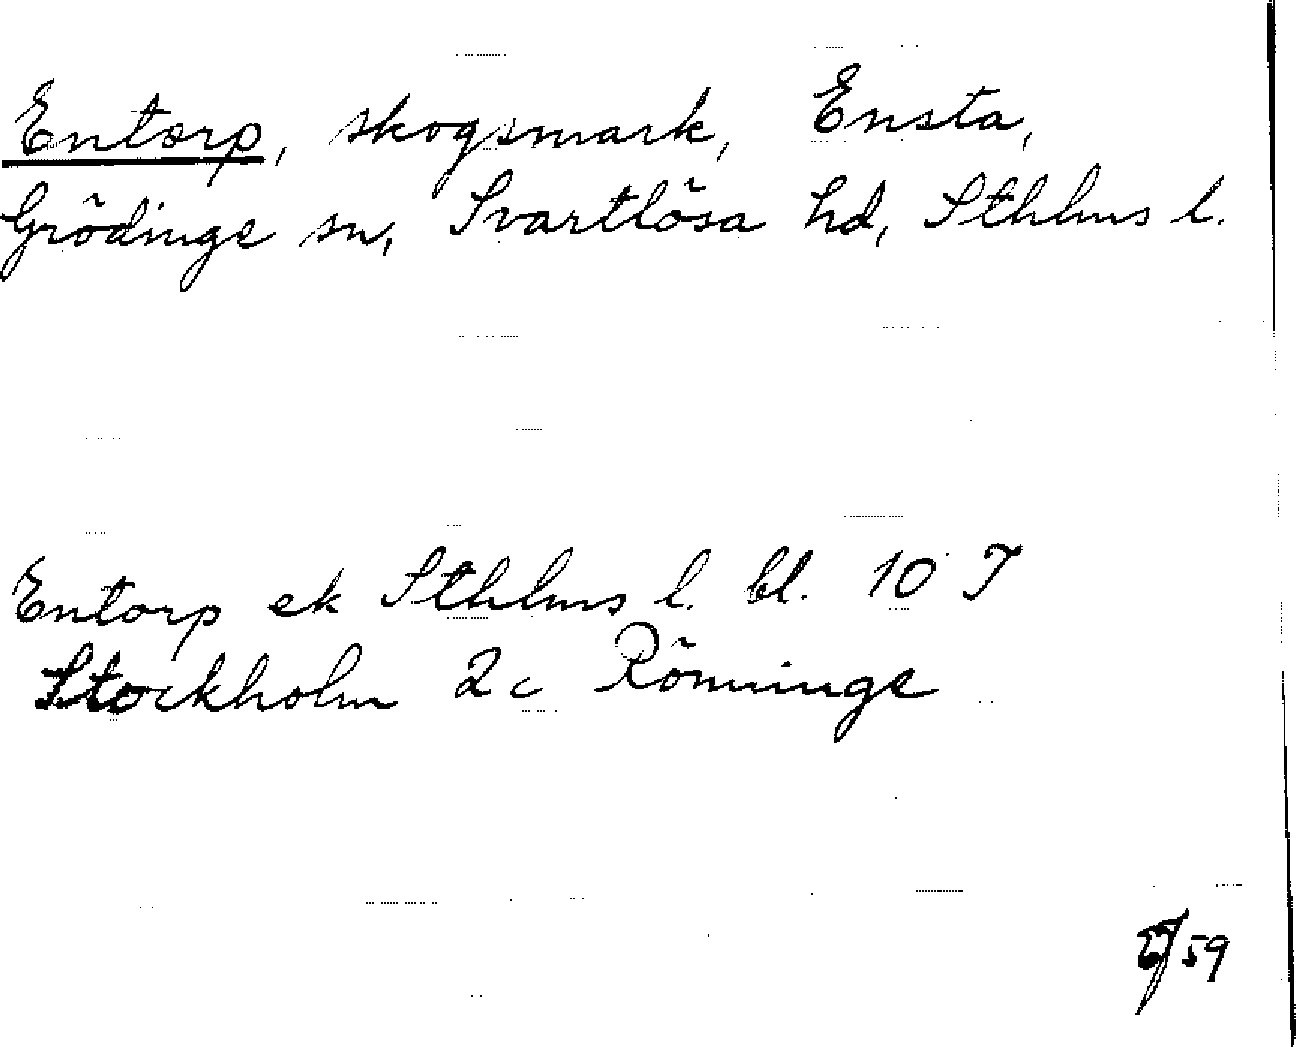 Entorp, skogsmark, Ensta,
Grödinge sn, Svartlösa hd, Sthlms l.
Entorp ek Sthlms l. bl. 10 J
Stockholm 2c Rönninge
59